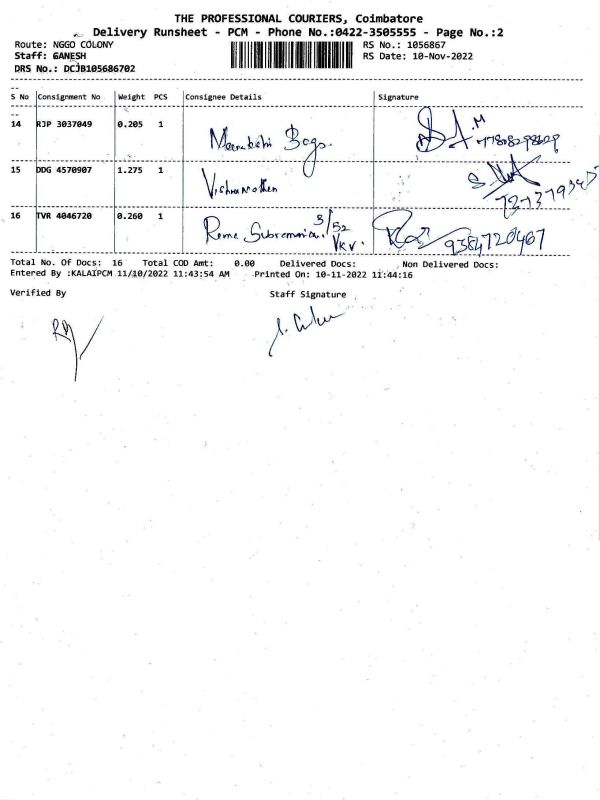 THE PROFESSIONAL COURIERS, Coimbatore
Delivery Runsheet - PCM - Phone No.:0422-3505555 - Page No.:2
Route: NGGO COLONY
RS No.: 1056867
Staff: GANESH
RS Date: 10-Nov-2022
DRS No.: DCJB105686702
S No Consignment No Weight PCS Consignee Details Signature
14 RJP 3037049 0.205 1 Meenakshi Bags
15 DDG 4570907 1.275 1
16 TVR 4046720 0.260 1 3/52 9384720467
VKV.
Total No. Of Docs: 16 Total COD Amt: 0.00 Delivered Docs: Non Delivered Docs:
Entered By :KALAIPCM 11/10/2022 11:43:54 AM Printed On: 10-11-2022 11:44:16
Verified By Staff Signature